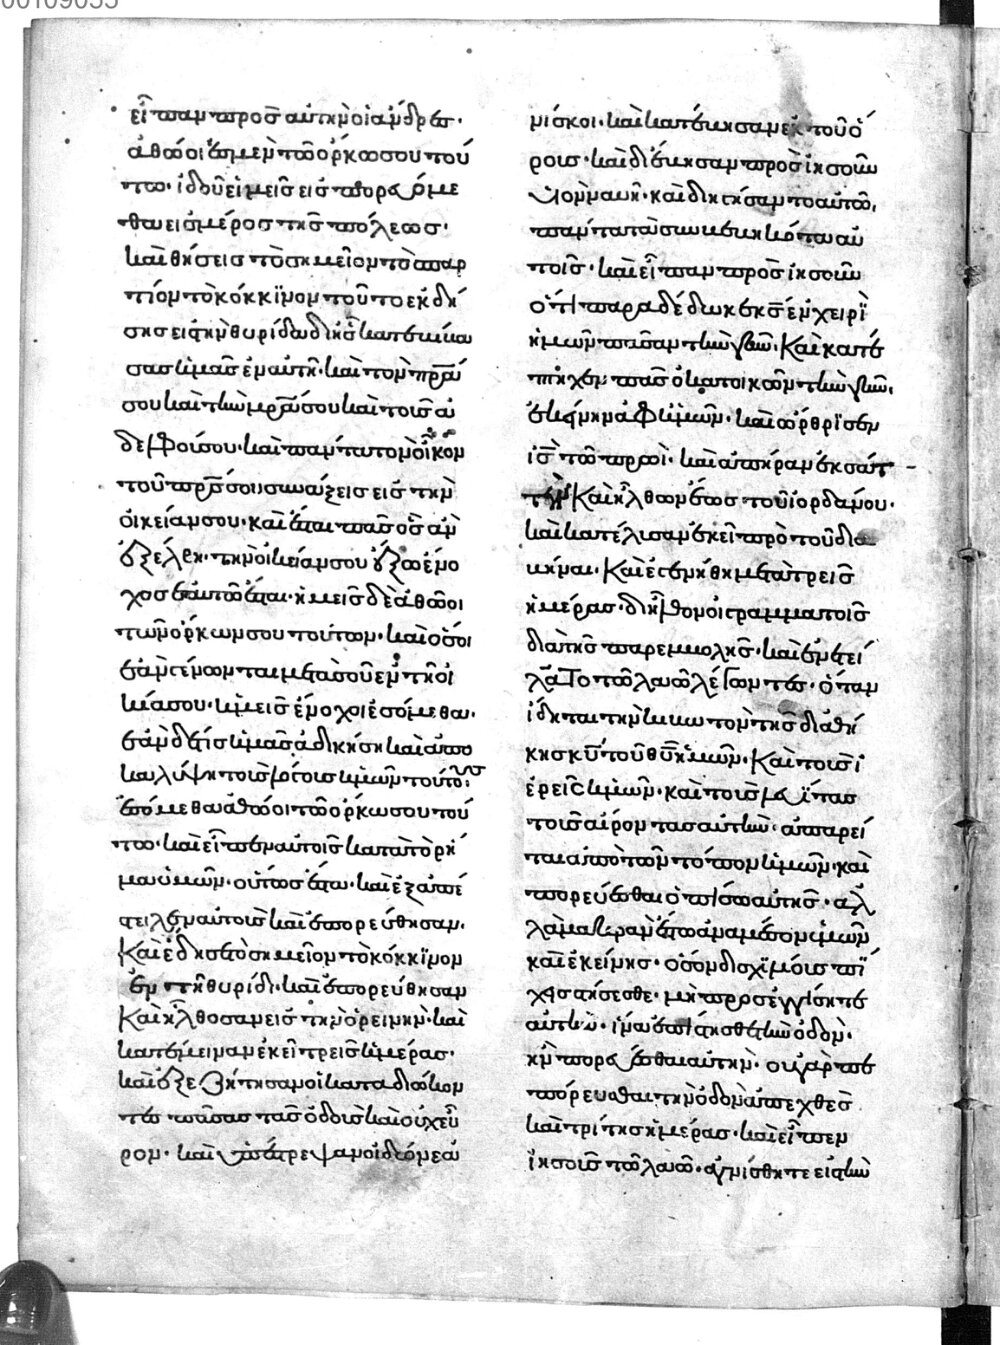 εἶπαν πρὸς αὐτὴν οἱ ἄνδρες·
ἀθῶοί ἐσμεν τῶ ὅρκω σου τού
τω· ἰδοὺ εἰμεῖς εἰσπορευόμε
θα εἰς μέρος τῆς πόλεως·
καὶ θήσεις τὸ σημεῖον τὸ σπαρ
τίον τὸ κόκκϊνον τοῦτο ἐκδή
σης εἰς τὴν θυρίδα δι' ἧς κατεβίβα
σας ὑμᾶς ἐν αὐτῆ· καὶ τὸν πρ̅α
σου καὶ τὴν μρ̅α σου καὶ τοὺς ἀ
δελφούς σου· καὶ πάντα τὸν οἶκον
τοῦ πρ̅ς σου συνάξεις εἰς τὴν
οἰκείαν σου· καὶ ἔσται πᾶς ὃς ἂν
ἐξέλθη· τὴν οἰκείαν σου ἔξω ἔνο
χος ἑαυτῶ ἔσται· ἡμεῖς δὲ ἀθῶοι
τῶν ὅρκων σου τούτων· καὶ ὅσοι
ἐὰν γένωνται μετὰ σοῦ ἐν τῆ οἰ
κία σου· ὑμεῖς ἔνοχοι ἐσόμεθα·
ἐὰν δέ τις ὑμᾶς ἀδικήση καὶ ἀπο
καλύψη τοὺς λόγους ὑμῶν τούτους·
ἐσόμεθα ἀθῶοι τῶ ὅρκω σου τού
τω· καὶ εἶπεν αὐτοῖς κατὰ τὸ ῥῆ
μα ὑμῶν· οὕτως ἔστω· καὶ ἐξαπέ
στειλεν αὐτοὺς καὶ ἐπορεύθησαν·
Καὶ ἔδησε τὸ σημεῖον τὸ κόκκϊνον
ἐν τῆ θυρίδι· καὶ ἐπορεύθησαν
Καὶ ἤλθοσαν εἰς τὴν ὀρεινὴν· καὶ
κατέμειναν ἐκεῖ τρεῖς ἡμέρας·
καὶ ἐξεζήτησαν οἱ καταδιώκον
τες πάσας τὰς ὁδοὺς καὶ οὐχ εὗ
ρον· καὶ ὑπέστρεψαν οἱ δύο νεα
νίσκοι· καὶ κατέβησαν ἐκ τοῦ ὄ
ρους· καὶ διέβησαν πρὸς ἰησοῦν
υἱὸν ναυῆ· καὶ διηγήσαντο αὐτῶ,
πάντα τὰ συμβεβηκότα αὐ
τοῖς· καὶ εἶπαν πρὸς ἰησοῦν
ὅτι παραδέδωκε κ̅ς ἐν χειρὶ
ἡμῶν πᾶσαν τὴν γῆν· Καὶ κατέ
πτηχεν πᾶς ὁ κατοικῶν τὴν γῆν·
ἐκείνην ἀφ' ἡμῶν· καὶ ὤρθρϊσεν
ἰς̅ τὸ πρωὶ· καὶ ἀπῆραν ἐκ σατ
τὶν Καὶ ἦλθων ἕως τοῦ ἰορδάνου·
καὶ κατέλυσαν ἐκεῖ πρὸ τοῦ δια
βῆναι· Καὶ ἐγενήθη μετὰ τρεῖς
ἡμέρας· διῆλθον οἱ γραμματοῖς
διὰ τῆς παρεμβολῆς· καὶ ἐνετεί
λατο τῶ λαῶ λέγοντες· ὅταν
ἴδηται τὴν κιβωτὸν τῆς διαθή
κης κ̅υ τοῦ θ̅υ ἡμῶν· Καὶ τοὺς ἱ
ερεῖς ὑμῶν· καὶ τοὺς λευΐτας
τοὺς αἴροντας αὐτὴν· ἀπαρεῖ
ται ἀπὸ τῶν τόπων ὑμῶν· καὶ
πορεύεσθαι ὀπίσω αὐτῆς· ἀλ
λὰ μακρὰν ἔστω ἀναμέσον ὑμῶν
καὶ ἐκείνης· ὅσον δισχϊλίους πή
χεις στήσεσθε· μὴ προσεγγίσητε
αὐτὴν· ἵνα ἐπίστησθε τὴν ὁδὸν·
ἣν πορεύεσθαι αὐτὴν· οὐ γὰρ πε
πόρευσθαι τὴν ὁδὸν ἀπ' ἐχθὲς
καὶ τρίτης ἡμέρας· καὶ εἶπεν
ἰησοῦς τῶ λαῶ· ἁγνίσθητε εἰς τὴν